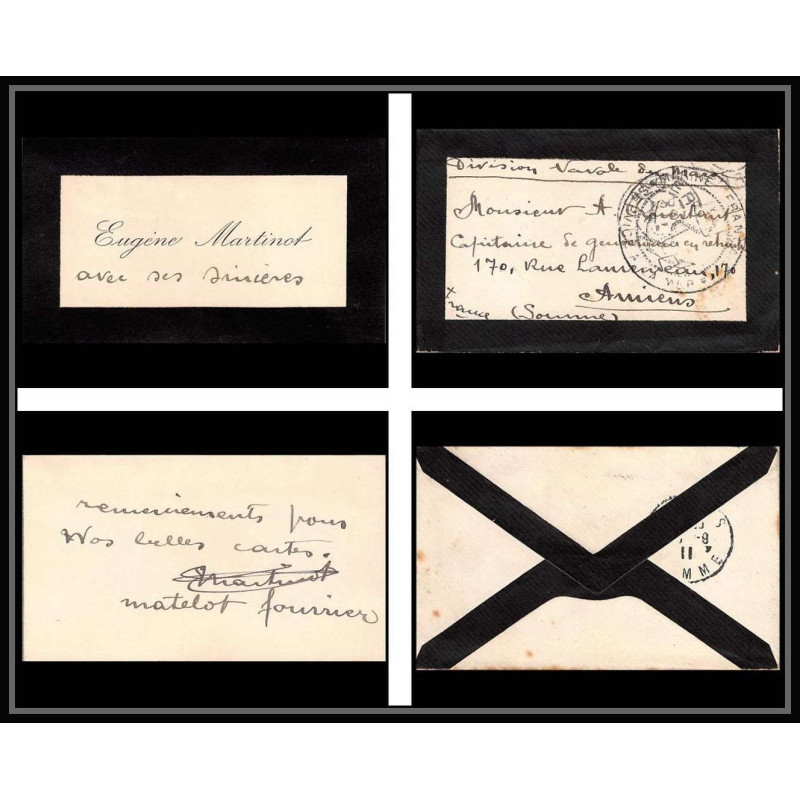 Eugène Martinot
avec ses sincères
Division Navale du Maroc
Monsieur A.
Capitaine de gendarmerie en retraite
170, Rue Laurendeau, 170
Amiens
France (Somme)
SERVICE MARINE FRAN
remerciements pour
Vos belles cartes.
Martinot
matelot fourrier
S
8-
4
11
MME